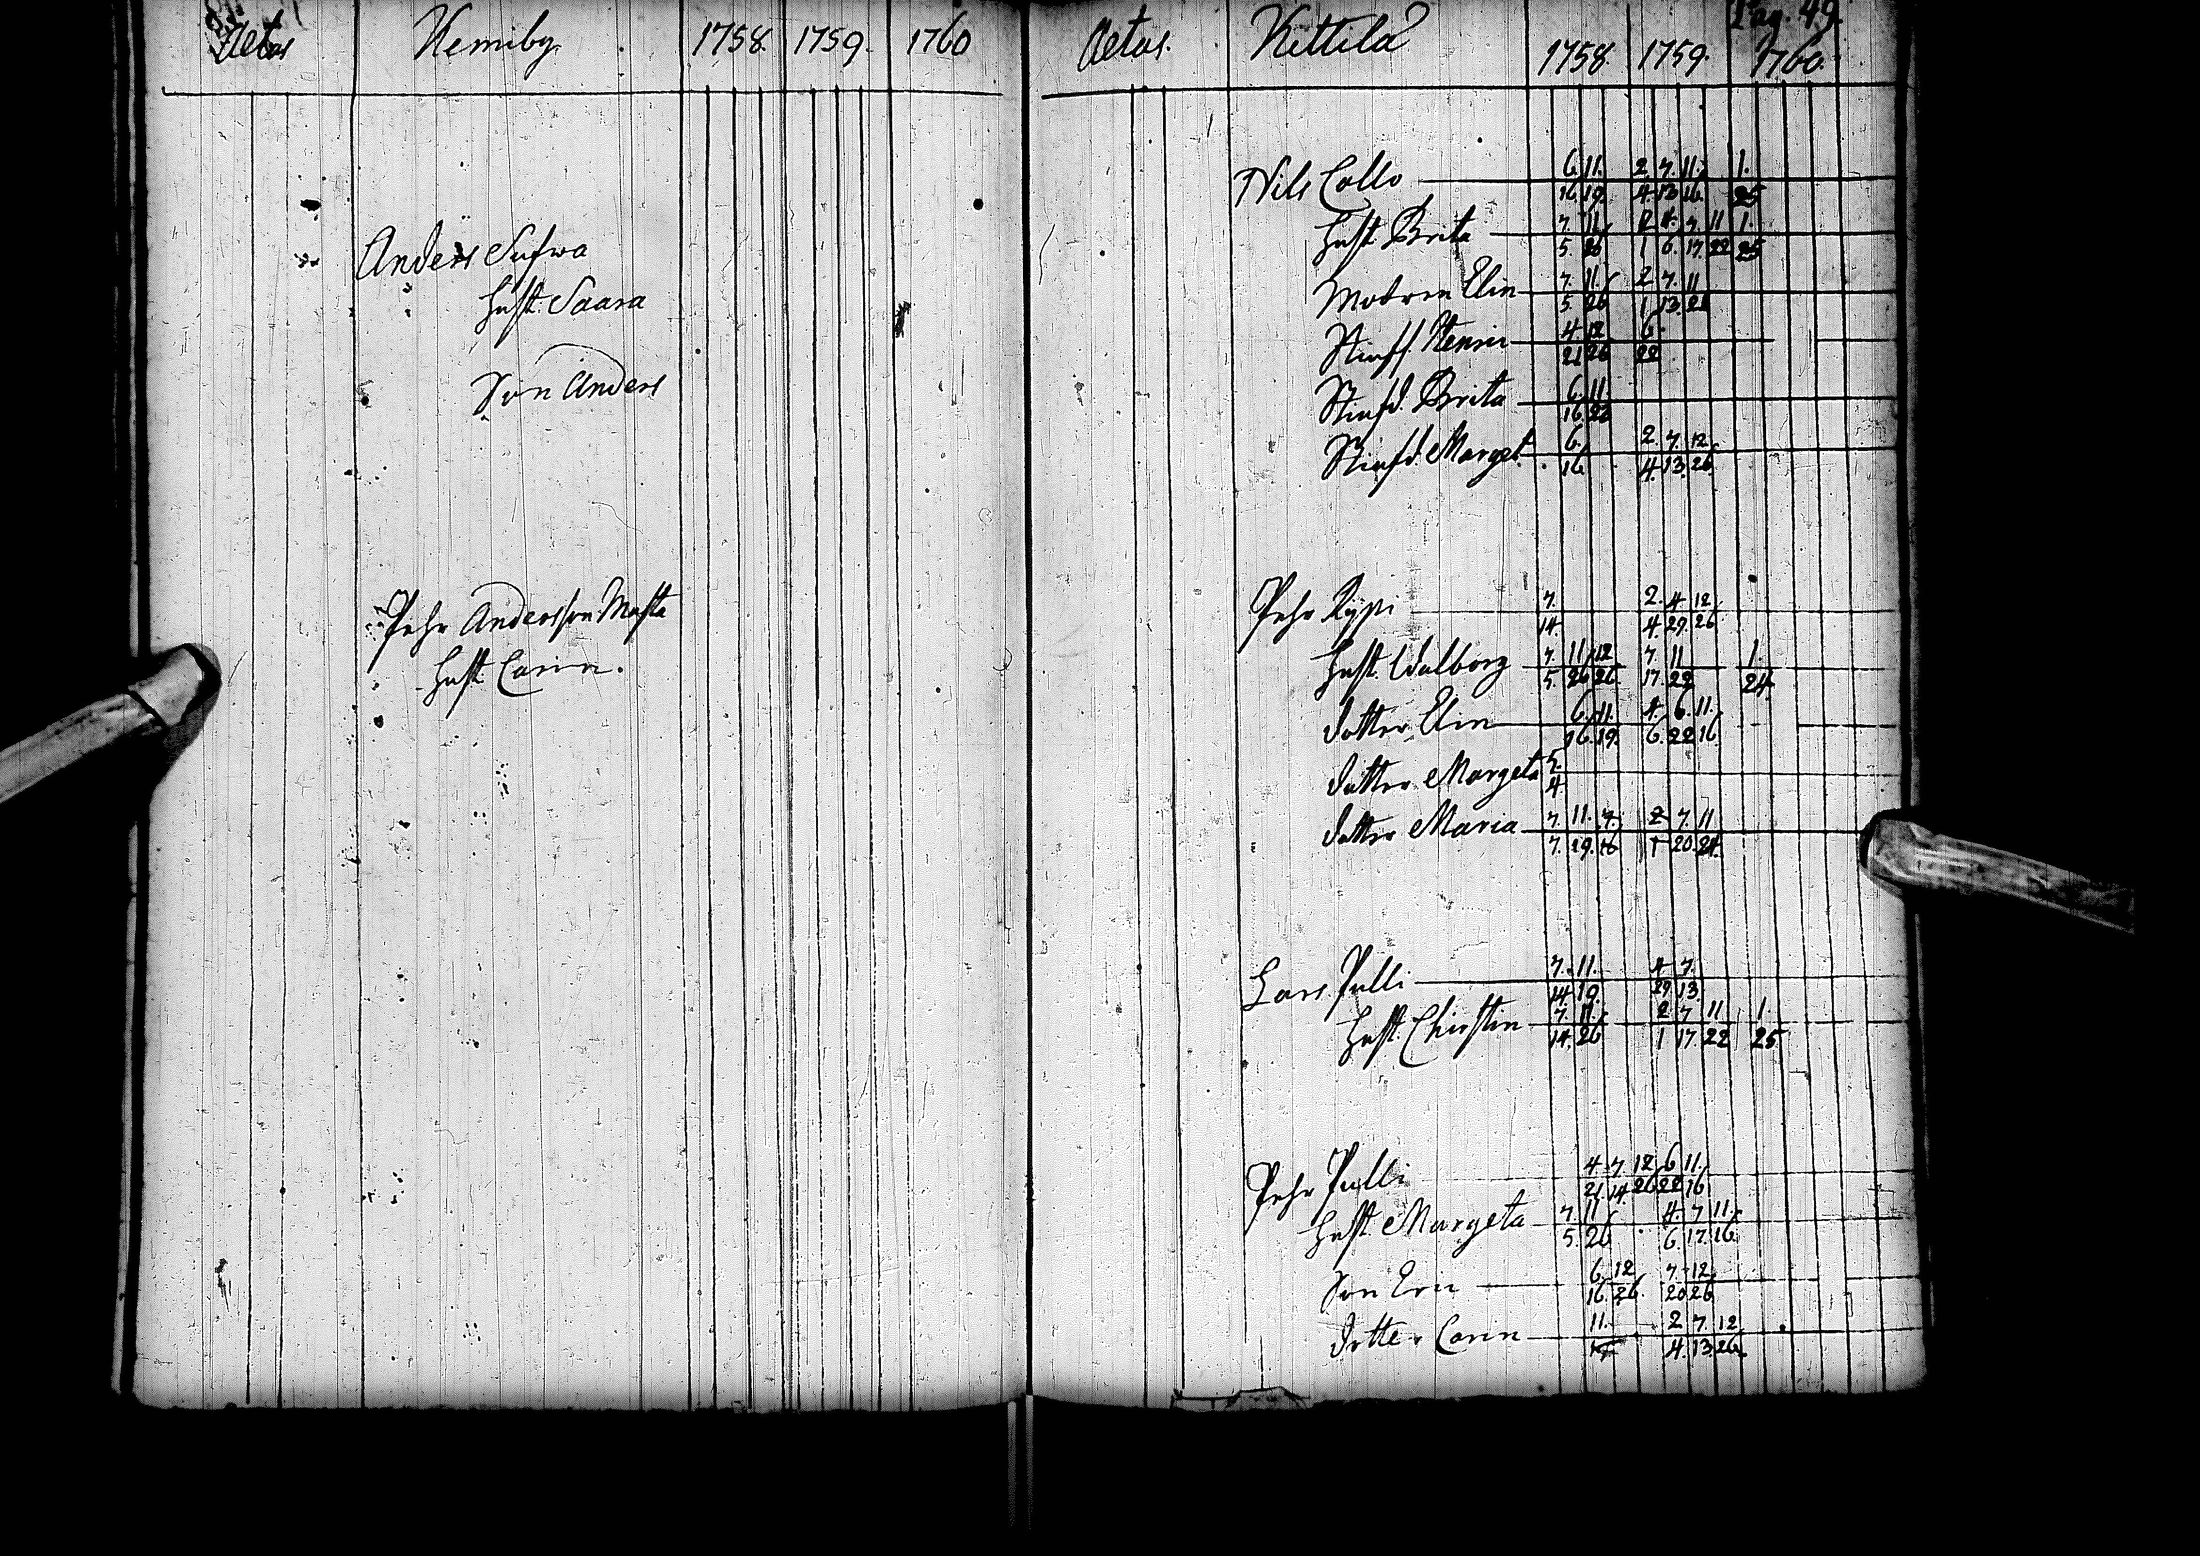 Aetas Kemiby. 1758. 1759. 1760
Anders Sufwa
Hust. Saara
Son Anders
Pehr Andersson Masta
Hust. Carin.
Pag. 49.
Aetas. Kittilä 1758. 1759. 1760.
Nils Collo 6. 11. 2. 7. 11. 1.
16 19. 4. 13 16. 25
Hust. Brita 7. 11. 2 4. 7. 11 1.
5. 26 1 6. 17. 22 25
Modren Elin 7. 11. 2. 7. 11
5. 26 1 13. 22
Stiufs. Henric 4. 12 6.
21 26 22
Stiufd. Brita 6. 11.
16. 22
Stiufd. Marget. 6. 2. 7. 12.
16 4. 13. 26.
Pehr Rÿpi 7. 2. 4. 12
14. 4. 29. 26
Hust. Walborg 7. 11. 12 7. 11 1.
5. 26 26. 17. 22 24.
Dotter Elin 6. 11. 4. 6. 11.
16. 19. 6. 22 16.
Dotter Margeta 5.
4
Dotter Maria 7. 11. 7. 2 7. 11
7. 29. 16 1 20. 24.
Lars Pulli 7. 11. 4 7.
14. 19. 29 13.
Hust. Christin 7. 11. 2. 7 11 1.
14. 26 1 17. 22 25
Pehr Pulli 4. 7. 12 6 11.
21 14 26 22 16
Hust. Margeta 7. 11 4. 7 11.
5. 26 6. 17. 16.
Son Eric 6. 12 7. 12.
16. 26. 20 26
Dotter Carin 11. 2 7. 12
4. 13. 26.